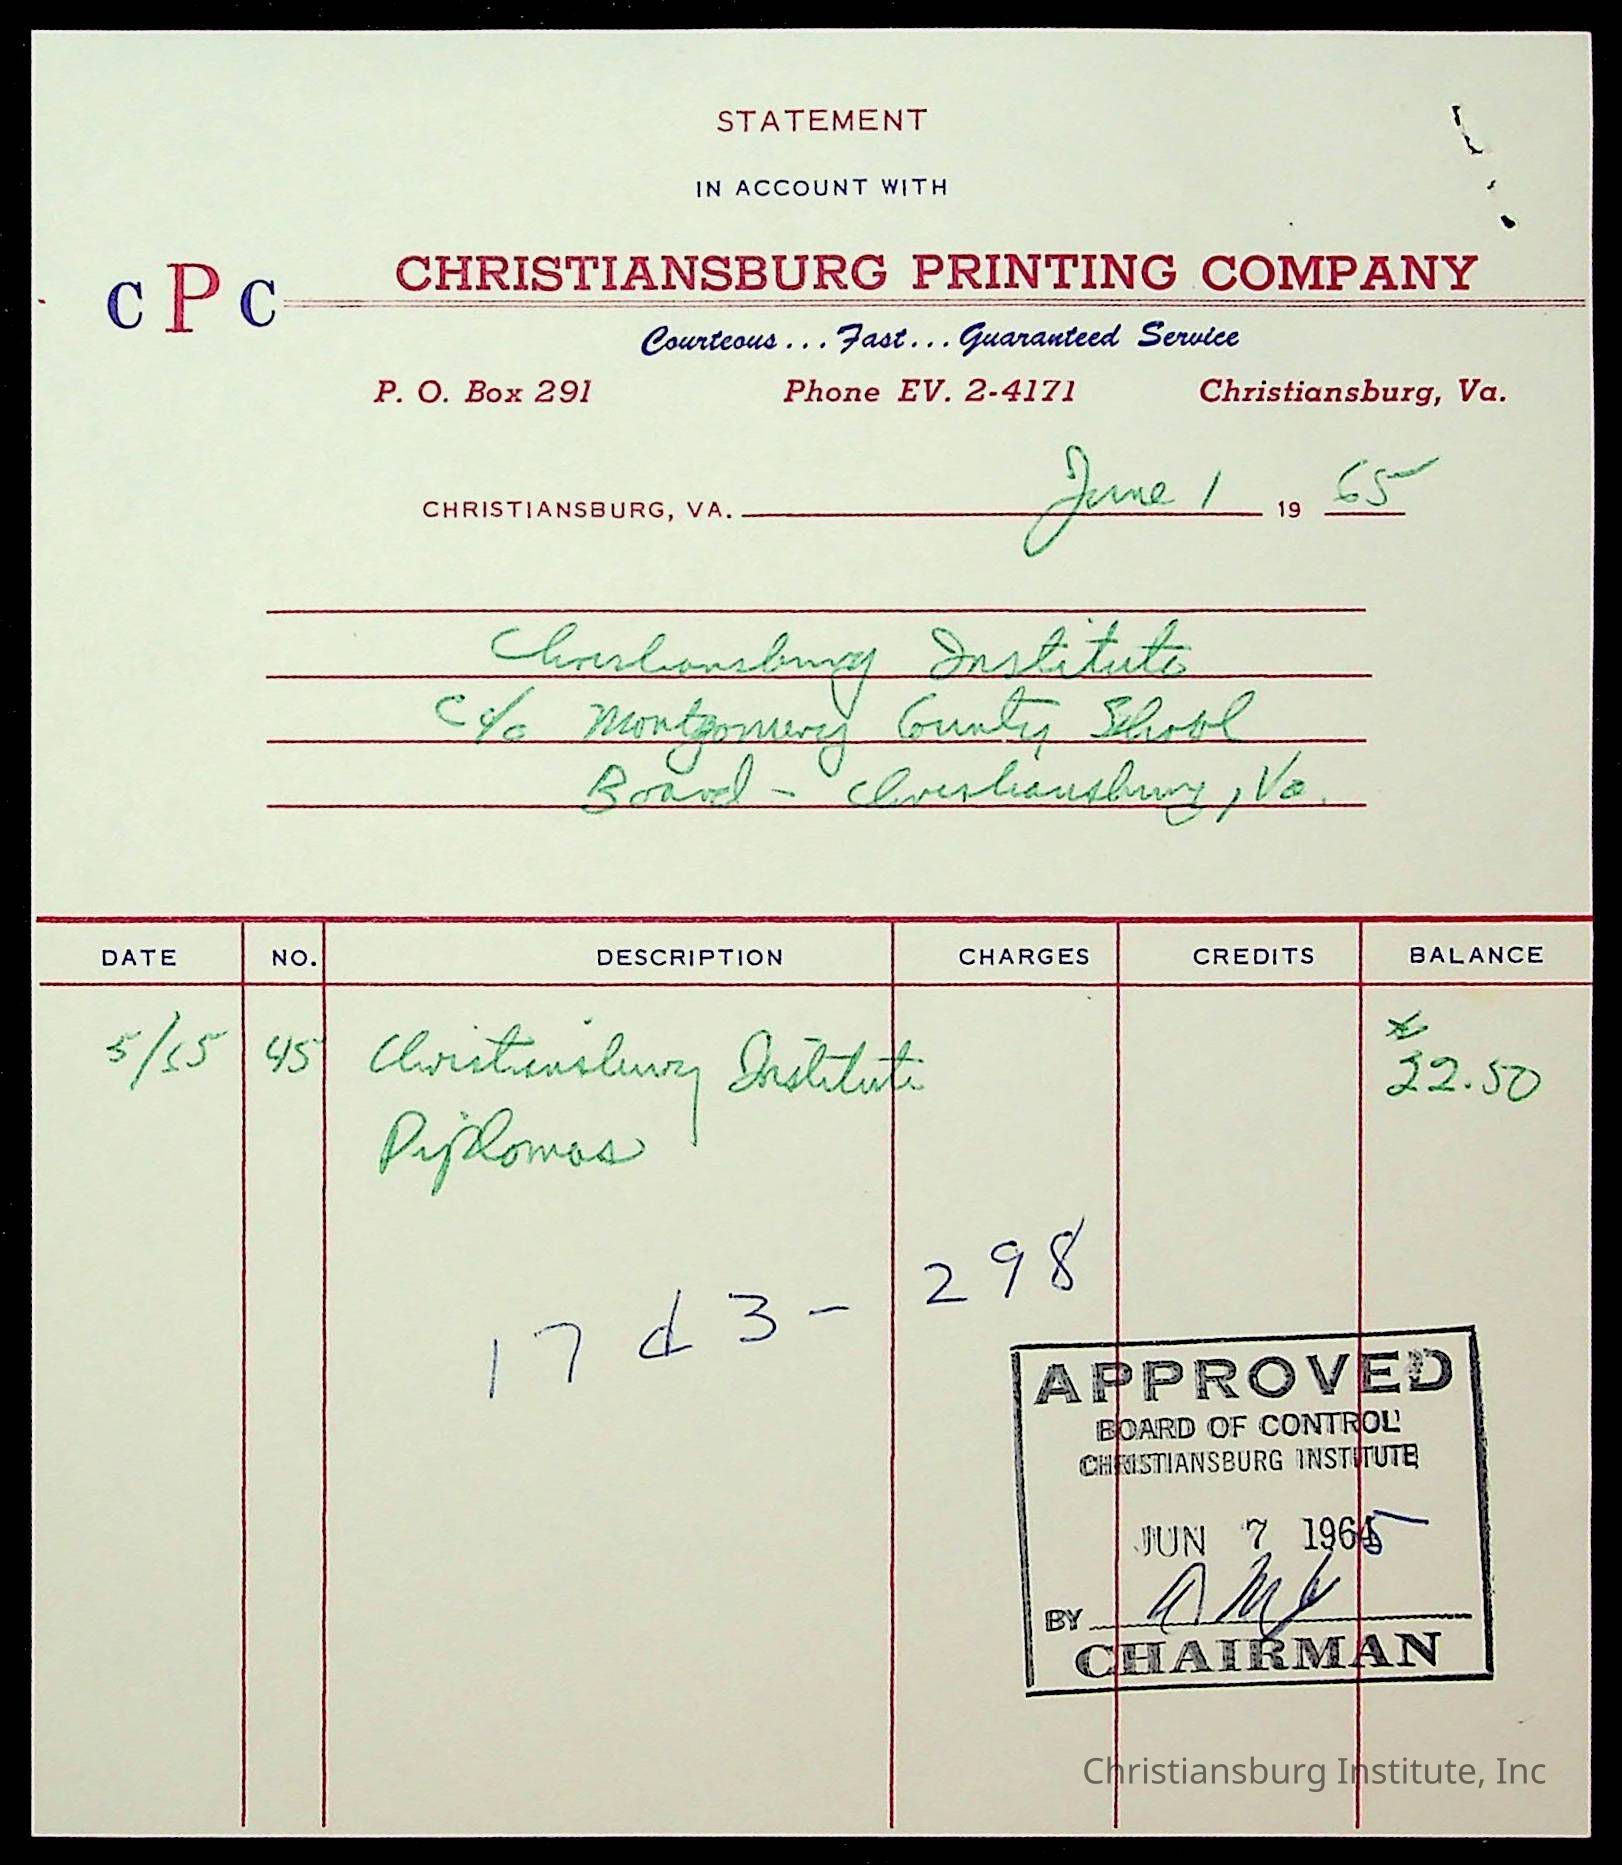 STATEMENT
IN ACCOUNT WITH
CPC CHRISTIANSBURG PRINTING COMPANY
Courteous... Fast... Guaranteed Service
P. O. Box 291 Phone EV. 2-4171 Christiansburg, Va.
CHRISTIANSBURG, VA. June 1 19 65
Christiansburg Institute
c/o Montgomery County School
Board - Christiansburg, Va.
DATE NO. DESCRIPTION CHARGES CREDITS BALANCE
45 Christiansburg Institute 22.50
Diplomas
17 d 3 - 298
APPROVED
BOARD OF CONTROL
CHRISTIANSBURG INSTITUTE
JUN 7 1965
BY
CHAIRMAN
Christiansburg Institute, Inc